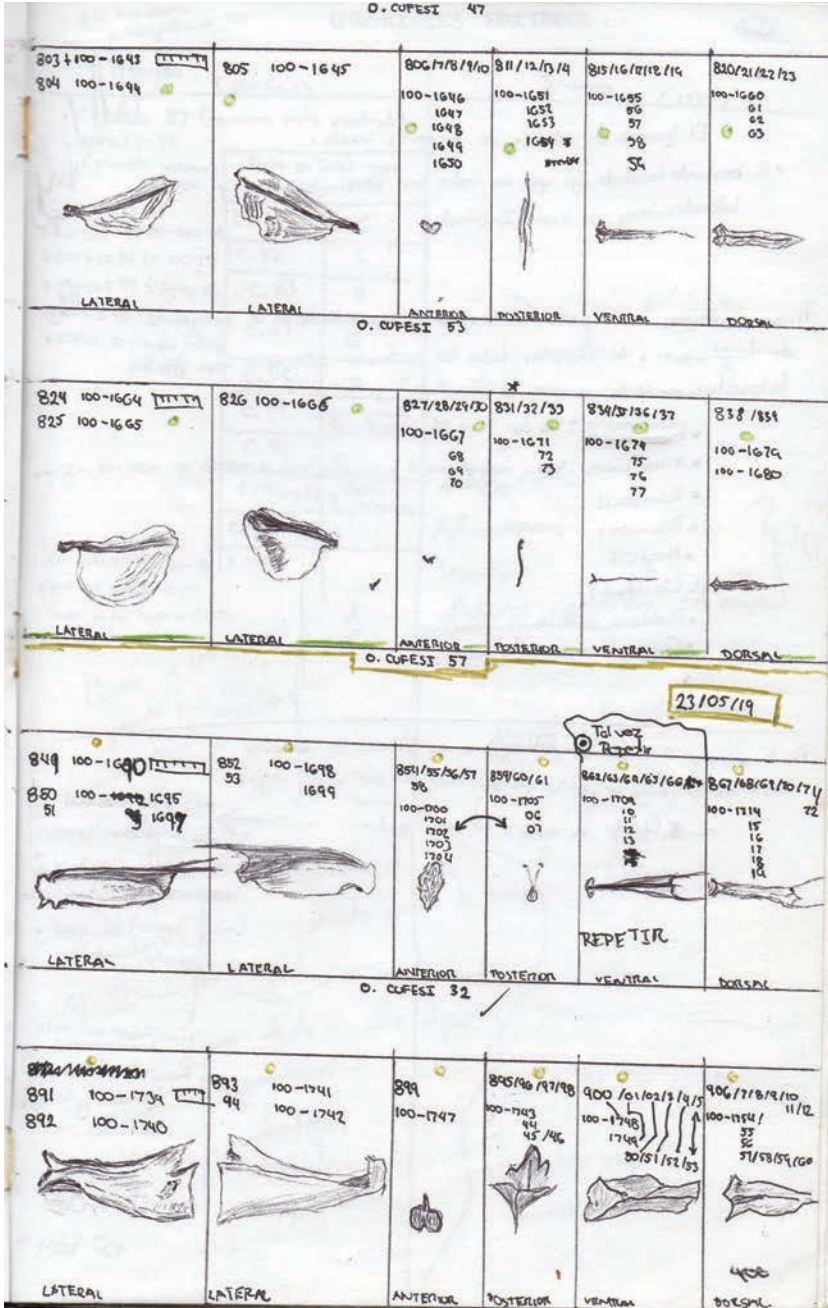 O. CUFESI 47
803 + 100-1643
804 100-1644
805 100-1645
806/7/8/9/10
100-1646
1647
1648
1649
1650
811/12/13/4
100-1651
1652
1653
1654
815/16/17/18/19
100-1655
56
57
58
59
820/21/22/23
100-1660
61
62
63
LATERAL
LATERAL
ANTERIOR
POSTERIOR
VENTRAL
DORSAL
O. CUFESI 53
824 100-1664
825 100-1665
826 100-1666
827/28/29/30
100-1667
68
69
70
831/32/33
100-1671
72
73
834/35/36/37
100-1674
75
76
77
838/839
100-1679
100-1680
LATERAL
LATERAL
ANTERIOR
POSTERIOR
VENTRAL
DORSAL
O. CUFESI 57
23/05/19
Tal vez
Repetir
849 100-1690
850 100- 1695
51
852 100-1698
53 1699
854/55/56/57
58
100-1700
1701
1702
1703
1704
859/60/61
100-1705
06
07
100-1709
10
11
12
13
867/68/69/70/71
72
100-1714
15
16
17
18
19
REPETIR
LATERAL
LATERAL
ANTERIOR
POSTERIOR
VENTRAL
DORSAL
O. CUFESI 32
891 100-1739
892 100-1740
893 100-1741
94 100-1742
899
100-1747
895/96/97/98
100-1743
44
45/46
900/01/02/3/4/5
100-1748
1749
50/51/52/53
906/7/8/9/10
11/12
100-1754/
55
56
57/58/59/60
LATERAL
LATERAL
ANTERIOR
POSTERIOR
VENTRAL
DORSAL